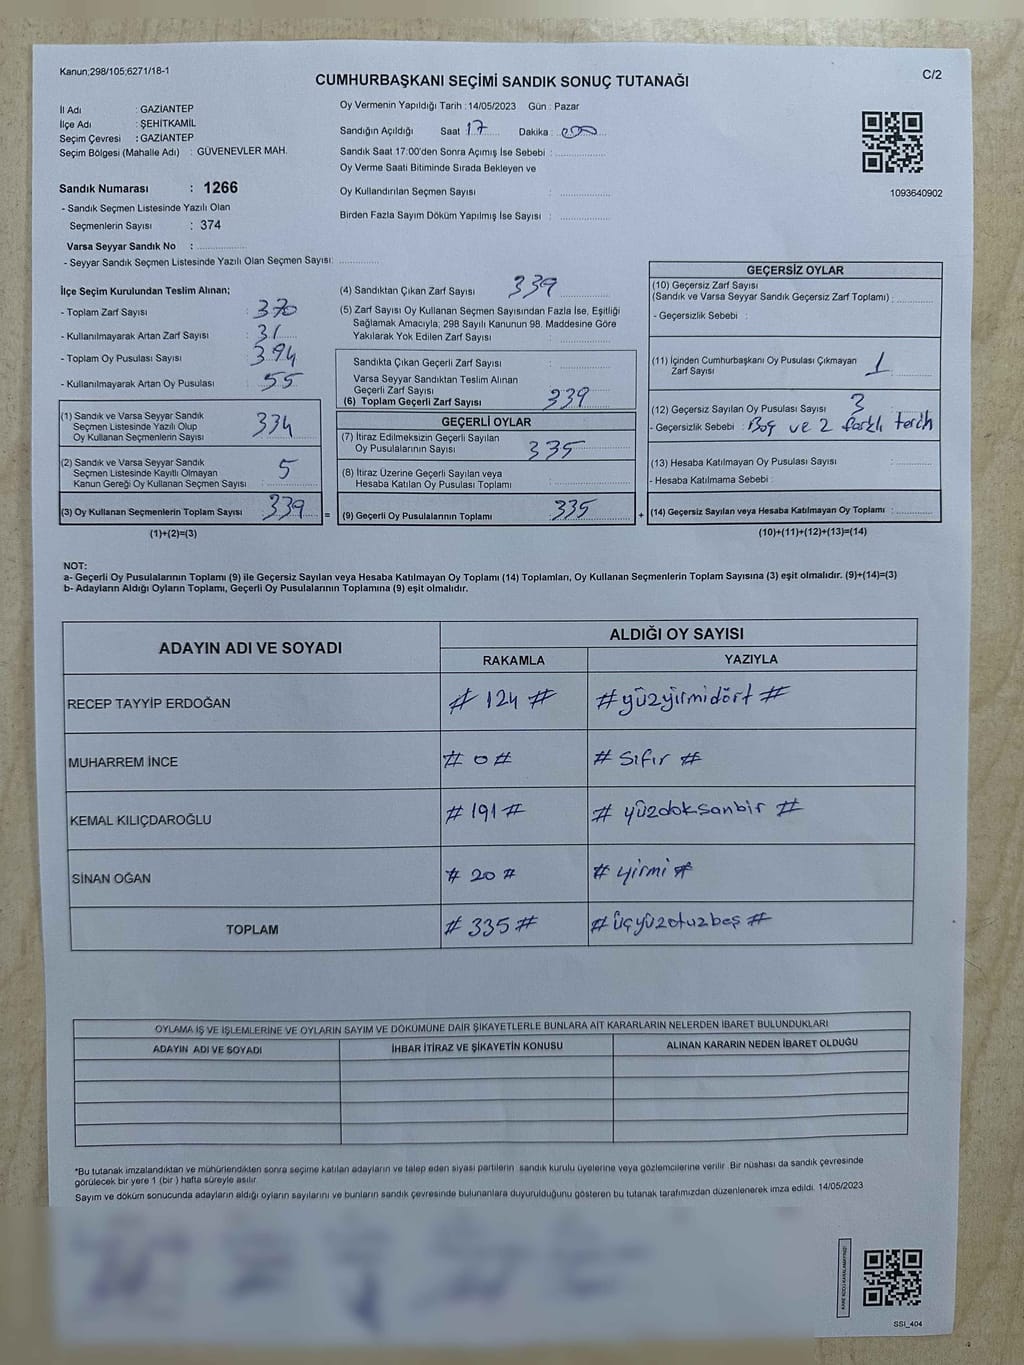 Kanun;298/105;6271/18-1
C/2
CUMHURBAŞKANI SEÇİMİ SANDIK SONUÇ TUTANAĞI
İl Adı : GAZİANTEP
İlçe Adı : ŞEHİTKAMİL
Seçim Çevresi : GAZİANTEP
Seçim Bölgesi (Mahalle Adı) : GÜVENEVLER MAH.
Sandık Numarası : 1266
- Sandık Seçmen Listesinde Yazılı Olan
Seçmenlerin Sayısı : 374
Varsa Seyyar Sandık No :
- Seyyar Sandık Seçmen Listesinde Yazılı Olan Seçmen Sayısı:
Oy Vermenin Yapıldığı Tarih : 14/05/2023 Gün : Pazar
Sandığın Açıldığı Saat : 17 Dakika :
Sandık Saat 17:00'den Sonra Açımış İse Sebebi :
Oy Verme Saati Bitiminde Sırada Bekleyen ve
Oy Kullandırılan Seçmen Sayısı :
Birden Fazla Sayım Döküm Yapılmış İse Sayısı :
1093640902
İlçe Seçim Kurulundan Teslim Alınan;
- Toplam Zarf Sayısı : 370
- Kullanılmayarak Artan Zarf Sayısı : 31
- Toplam Oy Pusulası Sayısı : 394
- Kullanılmayarak Artan Oy Pusulası : 55
(1) Sandık ve Varsa Seyyar Sandık
Seçmen Listesinde Yazılı Olup
Oy Kullanan Seçmenlerin Sayısı 334
(2) Sandık ve Varsa Seyyar Sandık
Seçmen Listesinde Kayıtlı Olmayan
Kanun Gereği Oy Kullanan Seçmen Sayısı : 5
(3) Oy Kullanan Seçmenlerin Toplam Sayısı : 339 =
(1)+(2)=(3)
(4) Sandıktan Çıkan Zarf Sayısı : 339
(5) Zarf Sayısı Oy Kullanan Seçmen Sayısından Fazla İse, Eşitliği
Sağlamak Amacıyla; 298 Sayılı Kanunun 98. Maddesine Göre
Yakılarak Yok Edilen Zarf Sayısı :
Sandıkta Çıkan Geçerli Zarf Sayısı :
Varsa Seyyar Sandıktan Teslim Alınan
Geçerli Zarf Sayısı :
(6) Toplam Geçerli Zarf Sayısı : 339
GEÇERLİ OYLAR
(7) İtiraz Edilmeksizin Geçerli Sayılan
Oy Pusulalarının Sayısı : 335
(8) İtiraz Üzerine Geçerli Sayılan veya
Hesaba Katılan Oy Pusulası Toplamı :
(9) Geçerli Oy Pusulalarının Toplamı : 335 +
GEÇERSİZ OYLAR
(10) Geçersiz Zarf Sayısı
(Sandık ve Varsa Seyyar Sandık Geçersiz Zarf Toplamı) :
- Geçersizlik Sebebi :
(11) İçinden Cumhurbaşkanı Oy Pusulası Çıkmayan
Zarf Sayısı : 1
(12) Geçersiz Sayılan Oy Pusulası Sayısı : 3
- Geçersizlik Sebebi : Boş ve 2 farklı tercih
(13) Hesaba Katılmayan Oy Pusulası Sayısı :
- Hesaba Katılmama Sebebi :
(14) Geçersiz Sayılan veya Hesaba Katılmayan Oy Toplamı :
(10)+(11)+(12)+(13)=(14)
NOT:
a- Geçerli Oy Pusulalarının Toplamı (9) ile Geçersiz Sayılan veya Hesaba Katılmayan Oy Toplamı (14) Toplamları, Oy Kullanan Seçmenlerin Toplam Sayısına (3) eşit olmalıdır. (9)+(14)=(3)
b- Adayların Aldığı Oyların Toplamı, Geçerli Oy Pusulalarının Toplamına (9) eşit olmalıdır.
ADAYIN ADI VE SOYADI ALDIĞI OY SAYISI
RAKAMLA YAZIYLA
RECEP TAYYİP ERDOĞAN # 124 # # yüzyirmidört #
MUHARREM İNCE # 0 # # Sıfır #
KEMAL KILIÇDAROĞLU # 191 # # yüzdoksanbir #
SİNAN OĞAN # 20 # # yirmi #
TOPLAM # 335 # # üçyüzotuzbeş #
OYLAMA İŞ VE İŞLEMLERİNE VE OYLARIN SAYIM VE DÖKÜMÜNE DAİR ŞİKAYETLERLE BUNLARA AİT KARARLARIN NELERDEN İBARET BULUNDUKLARI
ADAYIN ADI VE SOYADI İHBAR İTİRAZ VE ŞİKAYETİN KONUSU ALINAN KARARIN NEDEN İBARET OLDUĞU
*Bu tutanak imzalandıktan ve mühürlendikten sonra seçime katılan adayların ve talep eden siyasi partilerin sandık kurulu üyelerine veya gözlemcilerine verilir. Bir nüshası da sandık çevresinde
görülecek bir yere 1 (bir ) hafta süreyle asılır.
Sayım ve döküm sonucunda adayların aldığı oyların sayılarını ve bunların sandık çevresinde bulunanlara duyurulduğunu gösteren bu tutanak tarafımızdan düzenlenerek imza edildi. 14/05/2023
SSI_404